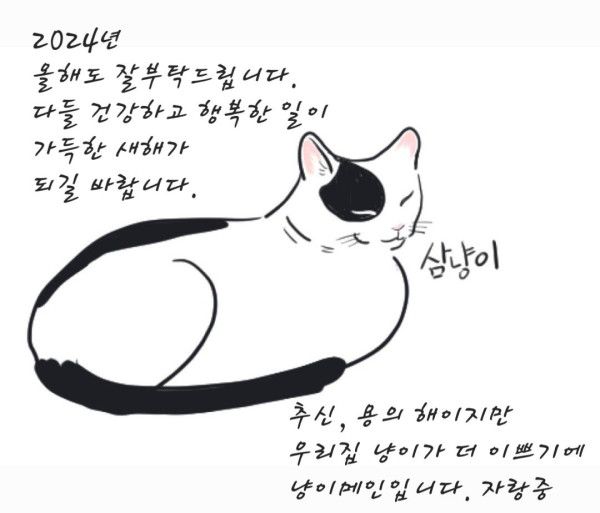 2024년
올해도 잘부탁드립니다.
다들 건강하고 행복한 일이
가득한 새해가
되길 바랍니다.
삼냥이
추신, 용의 해이지만
우리집 냥이가 더 이쁘기에
냥이메인입니다. 자랑중